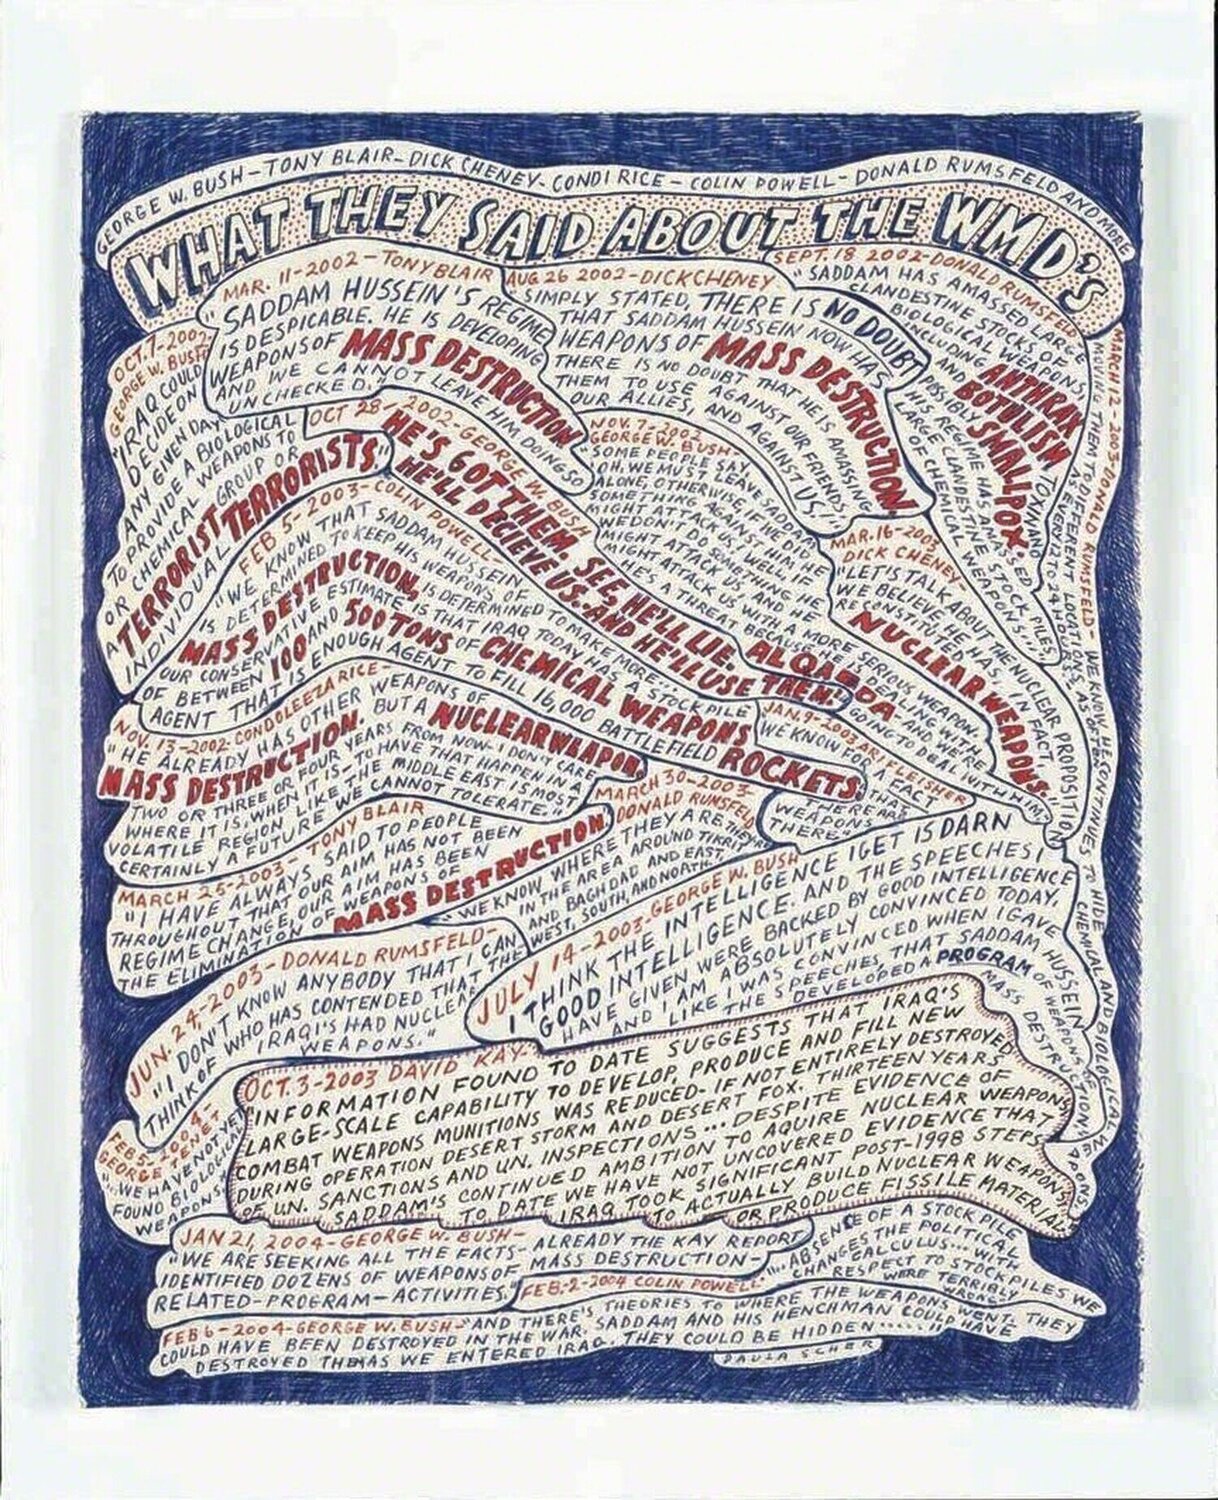 GEORGE W. BUSH - TONY BLAIR - DICK CHENEY - CONDI RICE - COLIN POWELL - DONALD RUMSFELD AND MORE
WHAT THEY SAID ABOUT THE WMD'S
MAR. 11-2002 - TONY BLAIR
"SADDAM HUSSEIN'S REGIME
IS DESPICABLE. HE IS DEVELOPING
WEAPONS OF MASS DESTRUCTION
AND WE CANNOT LEAVE HIM DOING SO
UNCHECKED."
AUG 26 2002 - DICK CHENEY
"SIMPLY STATED, THERE IS NO DOUBT
THAT SADDAM HUSSEIN NOW HAS
WEAPONS OF MASS DESTRUCTION.
THERE IS NO DOUBT THAT HE IS AMASSING
THEM TO USE AGAINST OUR FRIENDS,
OUR ALLIES, AND AGAINST US."
SEPT. 18 2002 - DONALD RUMSFELD
"SADDAM HAS AMASSED LARGE
CLANDESTINE STOCKS OF
BIOLOGICAL WEAPONS
INCLUDING ANTHRAX
AND BOTULISM TOXIN AND
POSSIBLY SMALLPOX.
HIS REGIME HAS AMASSED
LARGE CLANDESTINE STOCK PILES
OF CHEMICAL WEAPONS."
OCT. 7-2002
GEORGE W. BUSH
"IRAQ COULD
DECIDE ON
ANY GIVEN DAY
TO PROVIDE A BIOLOGICAL
OR CHEMICAL WEAPONS TO
A TERRORIST GROUP OR
INDIVIDUAL TERRORISTS."
OCT 28 / -2002-GEORGE W. BUSH
HE'S GOT THEM. SEE, HE'LL LIE.
HE'LL DECIEVE US. AND HE'LL USE THEM."
NOV. 7-2002-
GEORGE W. BUSH-
SOME PEOPLE SAY,
OH, WE MUST LEAVE SADDAM
ALONE, OTHERWISE, IF WE DID
SOMETHING AGAINST HIM HE
MIGHT ATTACK US. WELL, IF
WE DON'T DO SOMETHING HE
MIGHT ATTACK US, AND HE
MIGHT ATTACK US WITH A MORE SERIOUS WEAPON.
HE'S A THREAT BECAUSE HE IS DEALING WITH
AL QAEDA - AND WE'RE
GOING TO DEAL WITH HIM."
FEB 5-2003-COLIN POWELL-
"WE KNOW THAT SADDAM HUSSEIN
IS DETERMINED TO KEEP HIS WEAPONS OF
MASS DESTRUCTION, IS DETERMINED TO MAKE MORE...
OUR CONSERVATIVE ESTIMATE IS THAT IRAQ TODAY HAS A STOCK PILE
OF BETWEEN 100 AND 500 TONS OF CHEMICAL WEAPONS
AGENT THAT IS ENOUGH AGENT TO FILL 16,000 BATTLEFIELD ROCKETS."
MAR. 16-2003
DICK CHENEY-
"LET'S TALK ABOUT THE NUCLEAR PROPOSITION
WE BELIEVE HE HAS, IN FACT,
RECONSTITUTED NUCLEAR WEAPONS."
MARCH 12-2003-DONALD RUMSFELD - WE KNOW HE CONTINUES TO HIDE CHEMICAL AND BIOLOGICAL WEAPONS
MOVING THEM TO DIFFERENT LOCATIONS, AS OFTEN
AS EVERY 12 TO 24 HOURS
JAN. 9-2003 ARI FLEISHER
WE KNOW FOR A FACT
THAT THERE ARE
WEAPONS
THERE"
NOV. 13-2002-CONDOLEEZA RICE-
"HE ALREADY HAS OTHER WEAPONS OF
MASS DESTRUCTION. BUT A NUCLEAR WEAPON,
TWO OR THREE OR FOUR YEARS FROM NOW- I DON'T CARE
WHERE IT IS, WHEN IT IS- TO HAVE THAT HAPPEN IN A
VOLATILE REGION LIKE THE MIDDLE EAST IS MOST
CERTAINLY A FUTURE WE CANNOT TOLERATE."
MARCH 25-2003 - TONY BLAIR
"I HAVE ALWAYS SAID TO PEOPLE
THROUGHOUT THAT OUR AIM HAS NOT BEEN
REGIME CHANGE, OUR AIM HAS BEEN
THE ELIMINATION OF WEAPONS OF
MASS DESTRUCTION
MARCH 30-2003-
DONALD RUMSFELD
"WE KNOW WHERE THEY ARE, THEY'RE
IN THE AREA AROUND TIKRIT
AND BAGHDAD AND EAST,
WEST, SOUTH, AND NORTH-
JUN. 24,-2003-DONALD RUMSFELD-
"I DON'T KNOW ANYBODY THAT I CAN
THINK OF WHO HAS CONTENDED THAT THE
IRAQI'S HAD NUCLEAR
WEAPONS."
JULY 14-2003-GEORGE W. BUSH
I THINK THE INTELLIGENCE I GET IS DARN
GOOD INTELLIGENCE. AND THE SPEECHES I
HAVE GIVEN WERE BACKED BY GOOD INTELLIGENCE
AND I AM ABSOLUTELY CONVINCED TODAY,
LIKE I WAS CONVINCED WHEN I GAVE
THE SPEECHES, THAT SADDAM HUSSEIN
DEVELOPED A PROGRAM OF WEAPONS OF
MASS DESTRUCTION
OCT. 3-2003 DAVID KAY-
"INFORMATION FOUND TO DATE SUGGESTS THAT IRAQ'S
LARGE-SCALE CAPABILITY TO DEVELOP, PRODUCE AND FILL NEW
COMBAT WEAPONS MUNITIONS WAS REDUCED- IF NOT ENTIRELY DESTROYED
DURING OPERATION DESERT STORM AND DESERT FOX. THIRTEEN YEARS
OF U.N. SANCTIONS AND U.N. INSPECTIONS... DESPITE EVIDENCE OF
SADDAM'S CONTINUED AMBITION TO AQUIRE NUCLEAR WEAPONS
TO DATE WE HAVE NOT UNCOVERED EVIDENCE THAT
IRAQ TOOK SIGNIFICANT POST-1998 STEPS
TO ACTUALLY BUILD NUCLEAR WEAPONS
OR PRODUCE FISSILE MATERIAL
FEB 5, 2004
GEORGE TENET
"..WE HAVE NOT YET
FOUND BIOLOGICAL
WEAPONS."
JAN 21, 2004-GEORGE W. BUSH-
"WE ARE SEEKING ALL THE FACTS- ALREADY THE KAY REPORT
IDENTIFIED DOZENS OF WEAPONS OF MASS DESTRUCTION-
RELATED-PROGRAM-ACTIVITIES."
FEB.-2-2004 COLIN POWELL
"...ABSENCE OF A STOCK PILE
CHANGES THE POLITICAL
CALCULUS... WITH
RESPECT TO STOCKPILES WE
WERE TERRIBLY
WRONG"
FEB 6-2004-GEORGE W. BUSH-"AND THERE'S THEORIES TO WHERE THE WEAPONS WENT. THEY
COULD HAVE BEEN DESTROYED IN THE WAR. SADDAM AND HIS HENCHMAN COULD HAVE
DESTROYED THEM AS WE ENTERED IRAQ. THEY COULD BE HIDDEN......"
PAULA SCHER